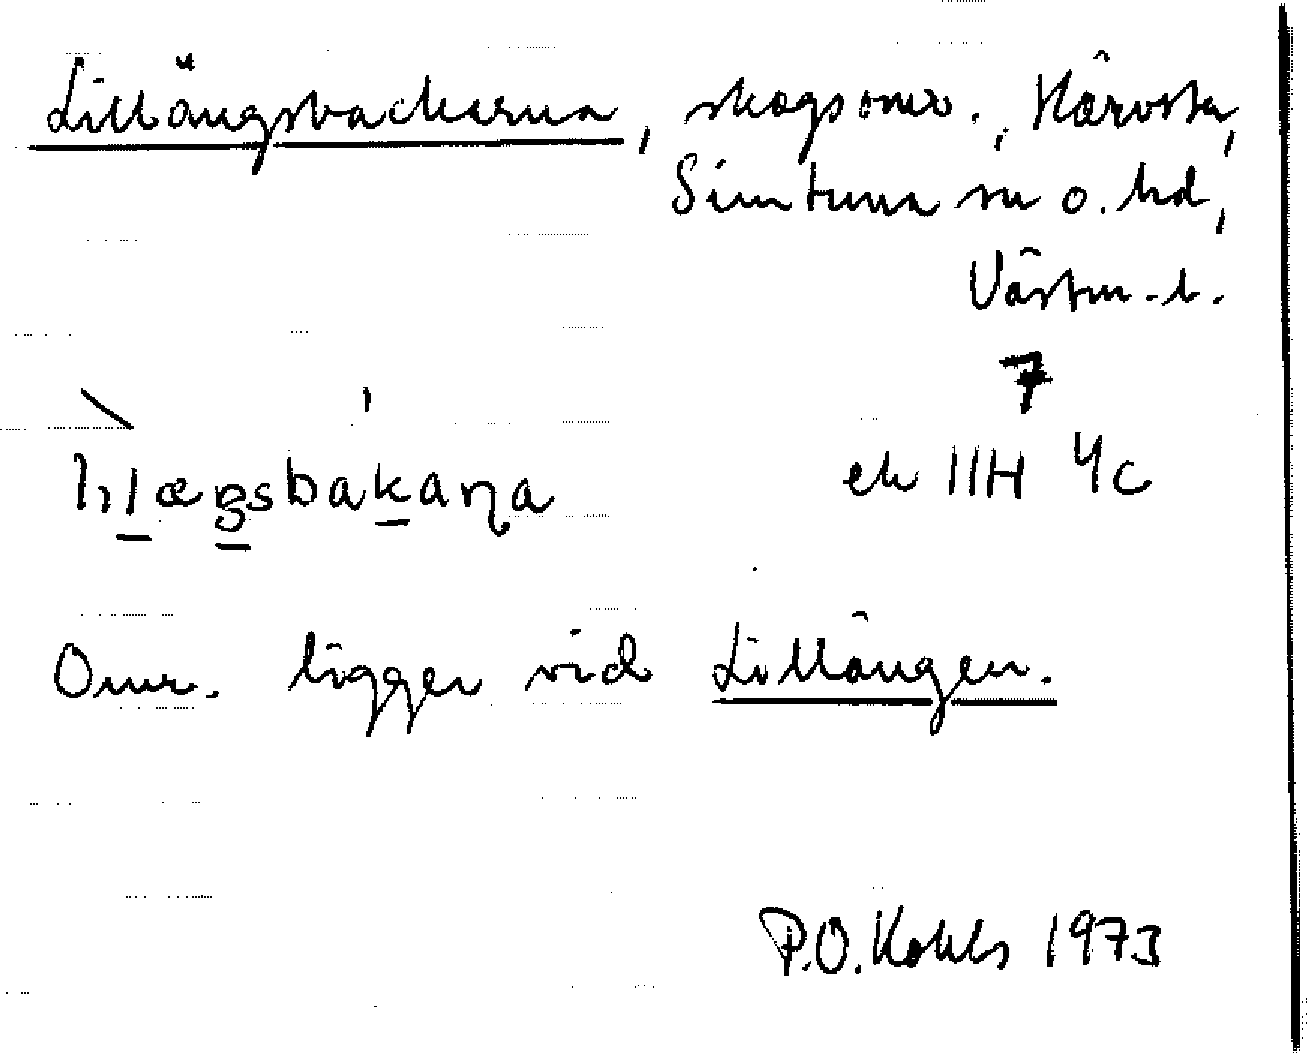 Lillängsbackarna, skogsomr., Härvsta,
Simtuna sn o. hd,
Västm. l.
7
ek 11H 4c
Omr. ligger vid Lillängen.
P.O. Kohls 1973